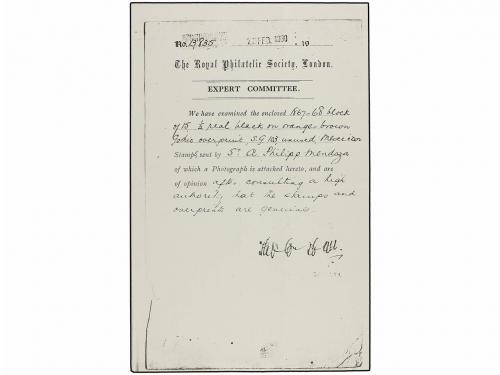 No. 13835 1930 19
The Royal Philatelic Society, London.
EXPERT COMMITTEE.
We have examined the enclosed 1867-68 block
of 15 ½ real black on orange-brown
Gothic overprint, S.G 103 unused, Mexican
Stamps sent by Sr. A. Philipp Mendoza
of which a Photograph is attached hereto, and are
of opinion after consulting a high
authority that the stamps and
overprints are genuine.